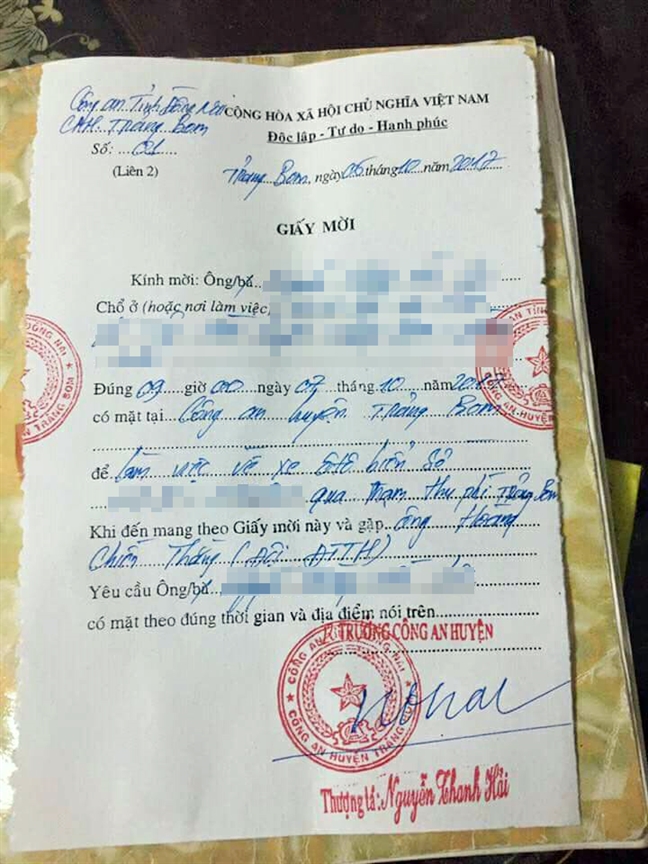 Công an Tỉnh Đồng Nai CỘNG HÒA XÃ HỘI CHỦ NGHĨA VIỆT NAM
CAH. Trảng Bom Độc lập - Tự do - Hạnh phúc
Số: 01
(Liên 2) Trảng Bom, ngày 06 tháng 10 năm 2017
GIẤY MỜI
Kính mời: Ông/bà
Chổ ở (hoặc nơi làm việc)
Đúng 09 giờ 00 ngày 07 tháng 10 năm 2017
có mặt tại Công an huyện Trảng Bom
để làm việc về xe ôtô biển số
qua trạm thu phí Trảng Bom
Khi đến mang theo Giấy mời này và gặp ông Hoàng
Chiến Thắng (Đội ĐTTH)
Yêu cầu Ông/bà
có mặt theo đúng thời gian và địa điểm nói trên
TRƯỞNG CÔNG AN HUYỆN
CÔNG AN HUYỆN TRẢNG BOM
Thượng tá: Nguyễn Thanh Hải